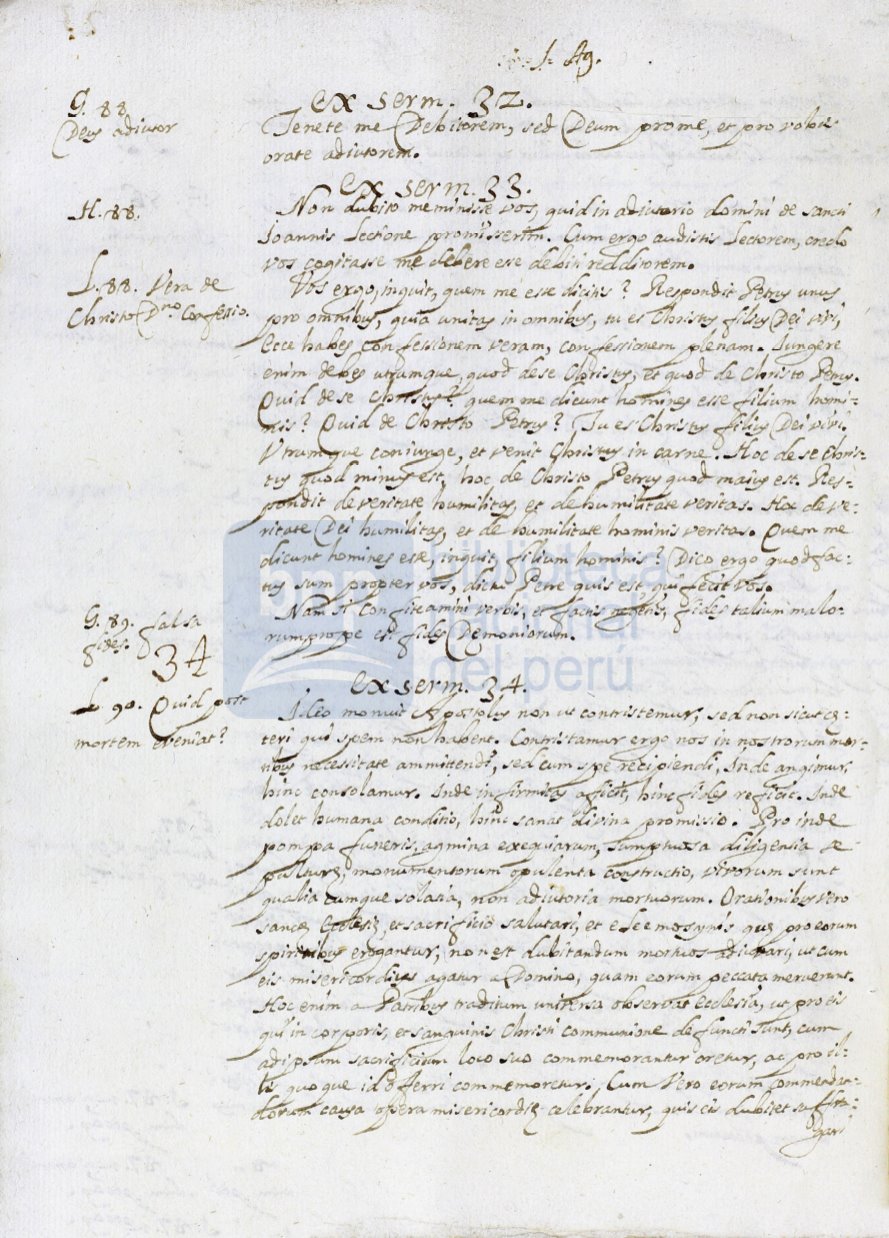 S. Ag.
ex serm. 32.
G. 88.
Deus adiutor
Tenete me Debitorem, sed Deum pro me, et pro vobis
orate adiutorem.
ex serm. 33.
H. 88.
Non dubito meminisse vos, quid in adiutorio domini de sancti
Joannis Lectione promisserim. Cum ergo audistis Lectorem, credo
vos cogitasse me debere esse debiti redditorem.
L. 88. Vera de
Christo Dno Confessio.
Vos ergo, inquit, quem me esse dicitis? Respondit Petrus unus
pro omnibus, quia unitas in omnibus, tu es Christus filius Dei vivi,
Ecce habes confessionem veram, confessionem plenam. Jungere
enim debes utrumque, quod de se Christus, et quod de Christo Petrus.
Quid de se Christus? quem me dicunt homines esse filium homi-
nis? Quid de Christo Petrus? Tu es Christus filius Dei vivi.
Utrumque coniunge, et venit Christus in carne. Hoc de se Chris-
tus quod minus est, hoc de Christo Petrus quod maius est. Res-
pondit de veritate humilitas, et de humilitate veritas. Hoc de ve-
ritate Dei humilitas, et de humilitate hominis veritas. Quem me
dicunt homines esse, inquit, filium hominis? Dico ergo quod fac-
tus sum propter vos, dic tu Petre quis est, qui fecit vos.
G. 89. falsa
fides.
Nam si confiteamini verbis, et factis fides talium malo-
rum prope est fides Demoniorum.
34
ex serm. 34.
L. 90. Quid post
mortem eveniat?
Ideo monuit Apostolus non ut contristemur, sed non sicut cę-
teri qui spem non habent. Contristamur ergo nos in nostrorum mor-
tibus necessitate ammitendi, sed cum spe recipiendi, Inde angimur,
hinc consolamur. Inde infirmitas aficit, hinc fides reficit. Inde
dolet humana conditio, hinc sanat divina promissio. Proinde
pompa funeris, agmina exequiarum, sumptuosa diligensia se
pulturę, monumentorum opulenta constructio, vivorum sunt
qualiacumque solasia, non adiutoria mortuorum. Orationibus vero
sanctę Eclesię, et sacrificio salutari, et eleemosynis quę pro eorum
spiritibus erogantur, non est dubitandum mortuos adiuvari, ut cum
eis misericordius agatur a Domino, quam eorum peccata meruerunt.
Hoc enim a Patribus traditum universa observat Ecclesia, ut pro eis
qui in corporis, et sanguinis Christi communione defuncti sunt, cum
ad ipsum sacrificium loco suo commemorantur oretur, ac pro il-
lis quoque id offerri commemoretur. Cum vero eorum commendan-
dorum causa opera misericordię celebrantur, quis eis dubitet suffra-
gari
bnp biblioteca
nacional
del perú